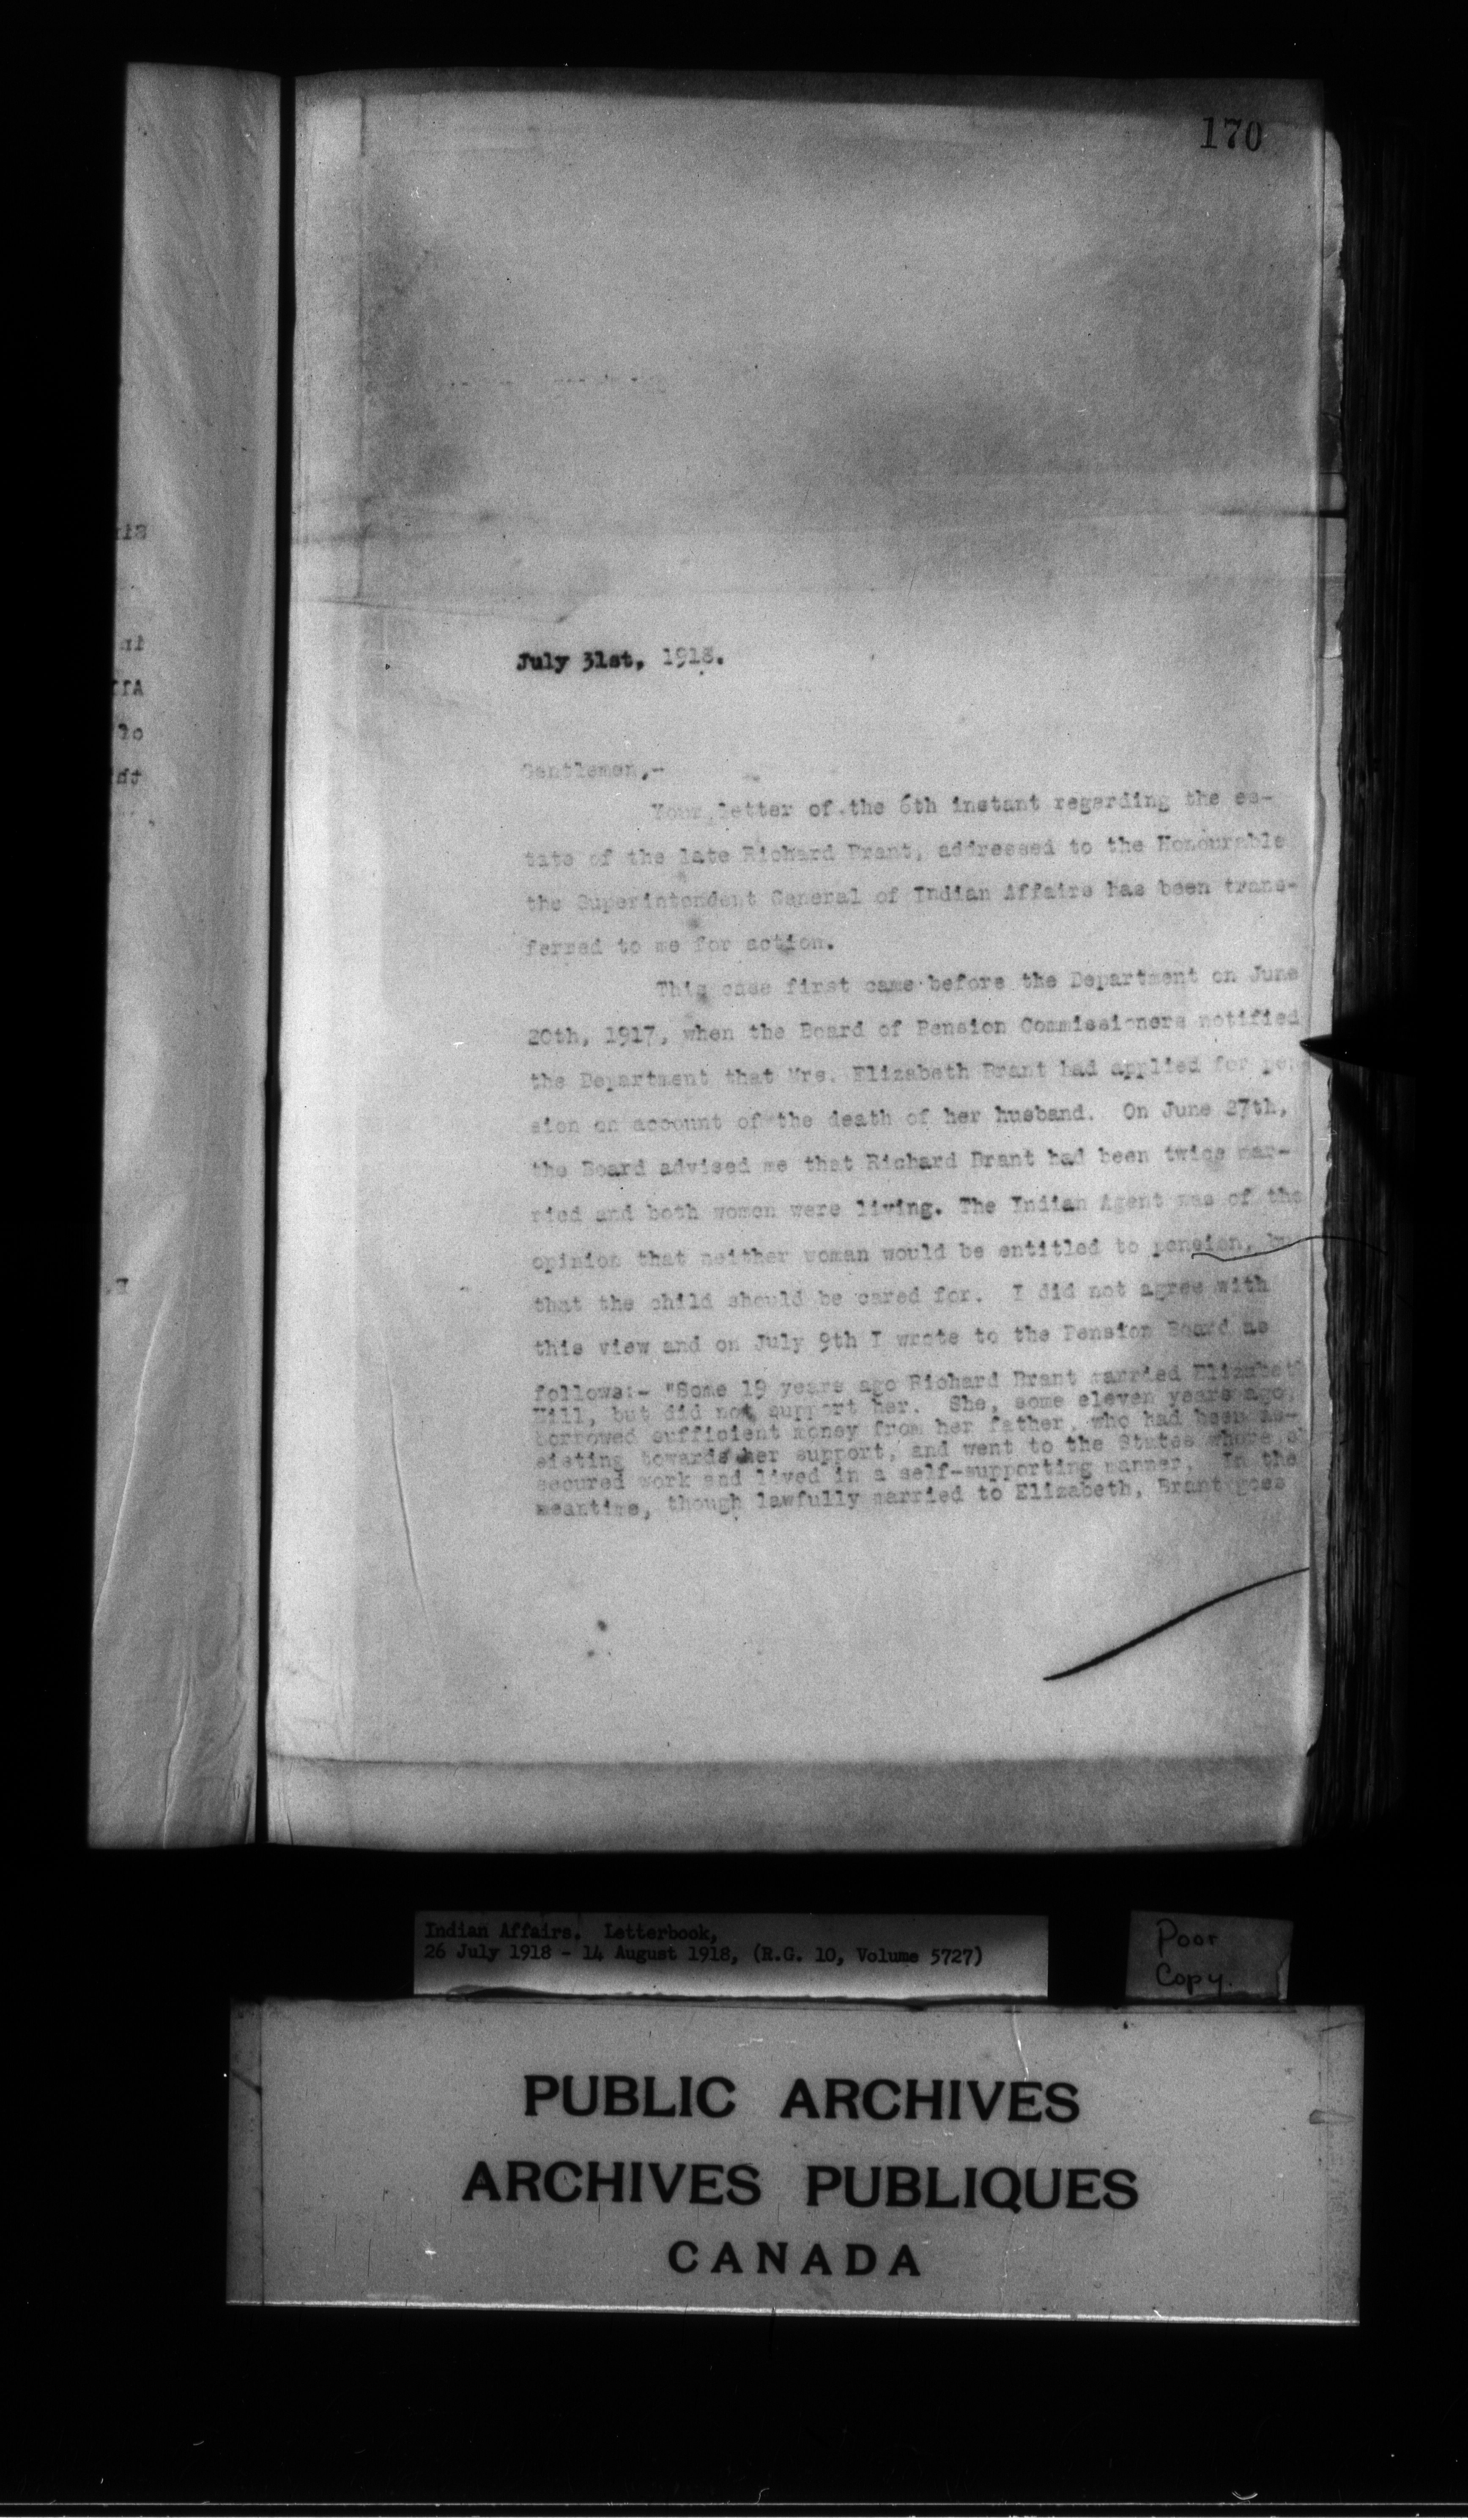 170
July 31st, 1918.
Gentlemen,-
Your letter of the 6th instant regarding the es-
tate of the late Richard Brant, addressed to the Honourable
the Superintendent General of Indian Affairs has been trans-
ferred to me for action.
This case first came before the Department on June
20th, 1917, when the Board of Pension Commissioners notified
the Department that Mrs. Elizabeth Brant had applied for pen
sion on account of the death of her husband. On June 27th,
the Board advised me that Richard Brant had been twice mar-
ried and both women were living. The Indian Agent was of the
opinion that neither woman would be entitled to pension, bu
that the child should be cared for. I did not agree with
this view and on July 9th I wrote to the Pension Board as
follows:- "Some 19 years ago Richard Brant married Elizabet
Hill, but did not support her. She, some eleven years ago,
borrowed sufficient money from her father, who had been as-
sisting towards her support, and went to the States where s
secured work and lived in a self-supporting manner. In the
meantime, though lawfully married to Elizabeth, Brant goes
Indian Affairs. Letterbook,
26 July 1918 - 14 August 1918, (R.G. 10, Volume 5727)
Poor
Copy.
PUBLIC ARCHIVES
ARCHIVES PUBLIQUES
CANADA